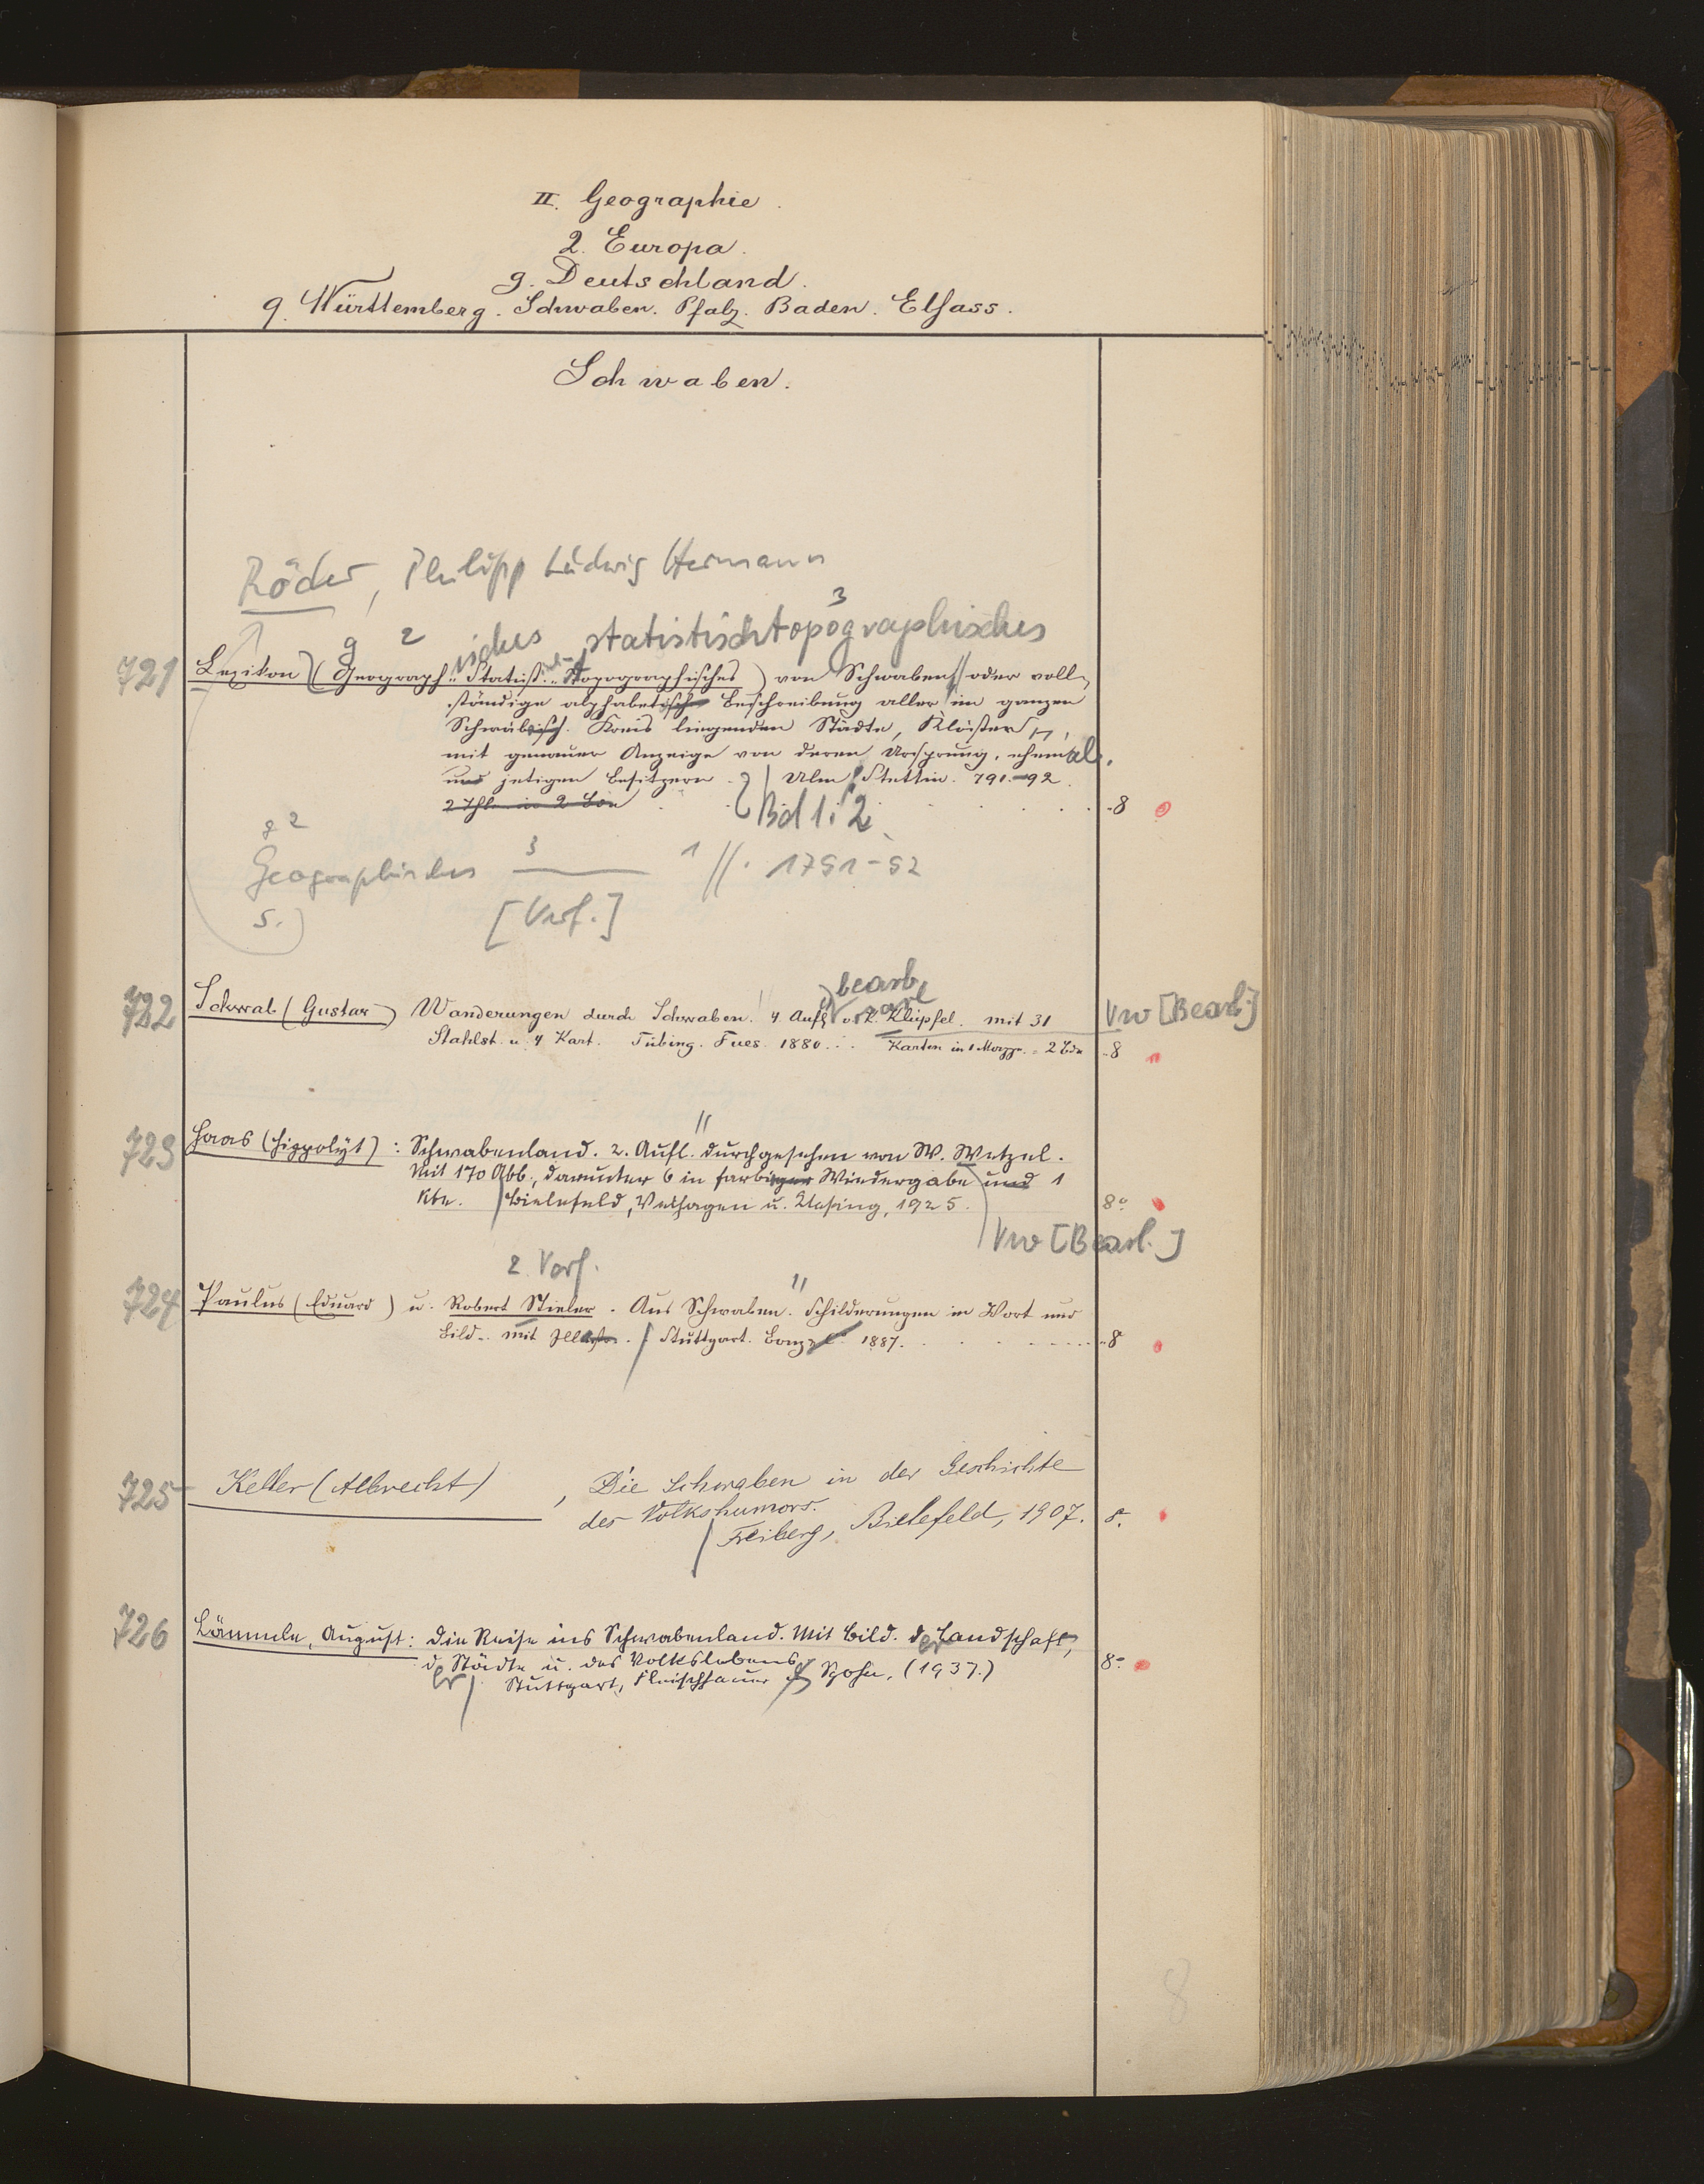 II. Geographie.
2. Europa.
g. Deutschland.
q. Württemberg. Schwaben. Pfalz. Baden. Elsass.
Schwaben.
Röder, Philipp Ludwig Hermann
g 2 isches statistischtopographisches 3
721 Lexikon (Geograph.- Statist.- Topographisches) von Schwaben // oder voll-
ständige alphabetische Beschreibung aller im ganzen
Schwäbisch. Kreis liegenden Städte, Klöster,
mit genauer Anzeige von deren Ursprung, ehemal.
und jetigen Besitzern. Ulm, Stettin. 791.-92.
2 Thle in 2 Bdn Bd 1. 2. 8
g 2
Geographisches 3 1 //. 1791-92
S. [Verf.]
bearb.
722 Schwab (Gustav) Wanderungen durch Schwaben. 4. Aufl. v. K. Klüpfel. mit 31 Vw [Bearb.]
Stahlst. u. 4 Kart. Tübing. Fues. 1880. Karten in 1 Mappe. = 2 Bde 8
723 Haas (Hippolyt): Schwabenland. 2. Aufl. durchgesehen von W. Wetzel.
Mit 170 Abb., darunter 6 in farbiger Wiedergabe und 1
Kte. Bielefeld, Velhagen u. Klasing, 1925. 8°
Vw [Bearb.]
2. Verf.
724 Paulus (Eduard) u. Robert Stieler. Aus Schwaben. Schilderungen in Wort und
Bild. mit Illustr. Stuttgart. Bonz 1887. 8
725 Keller (Albrecht), Die Schwaben in der Geschichte
des Volkshumors.
Freiberg, Bielefeld, 1907. 8.
726 Lämmle, August: Die Reise ins Schwabenland. Mit Bild. der Landschaft,
der Städte u. des Volkslebens.
Stuttgart, Fleischhauer & Spohn, (1937.) 8°
8